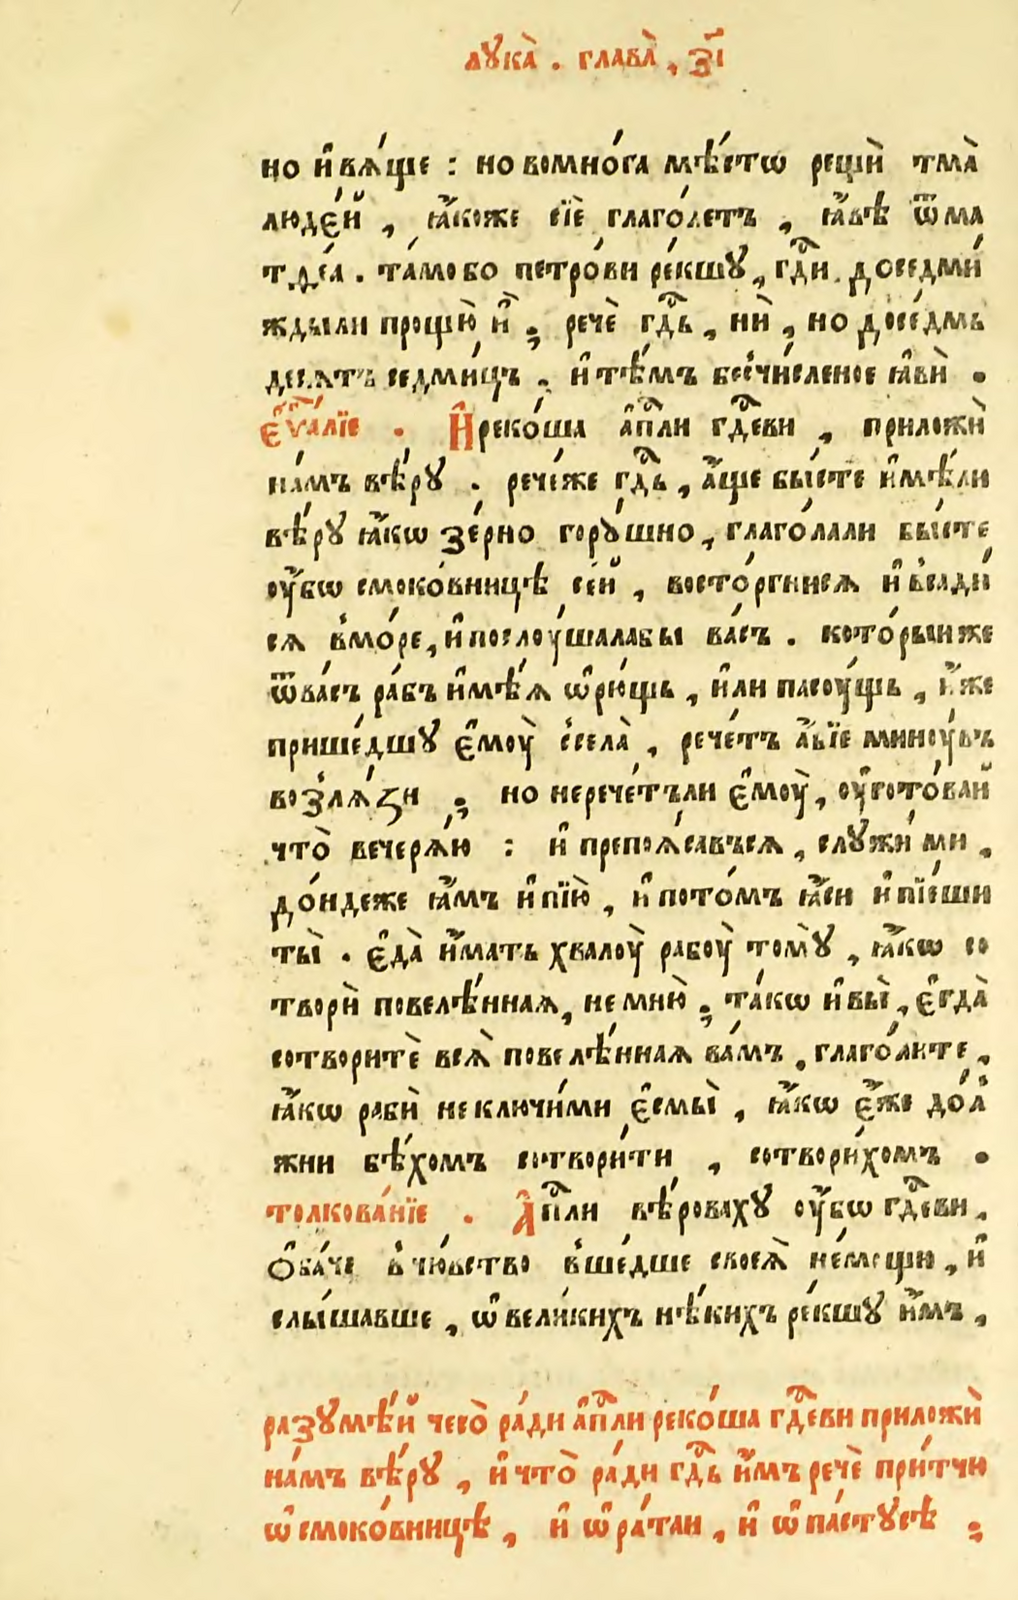 лꙋка̀ . глава̀ , з҃і
но и҆вѧ́ще : но вомно́га мѣ́стѡ рещѝ тма̀
люде́й , ꙗ҆́коже сїѐ глаго́летъ , ꙗ҆́вѣ ѿма
тѳе́а . та́мо бо петро́ви ре́кшꙋ , гдⷭ҇и доседми́
жды ли прощꙋ̀ и҆̀ ; речѐ гдⷭ҇ь , нѝ , но досе́дмь
десѧтъ седми́цъ , и҆ тѣ́мъ безчи́сленое ꙗ҆вѝ .
є҆ѵⷢ҇а́лїе . И҆реко́ша а҆пⷭ҇ли гдⷭ҇еви , приложѝ
на́мъ вѣ́рꙋ . рече́же гдⷭ҇ь , а҆́ще бы́сте и҆мѣ́ли
вѣ́рꙋ ꙗ҆́кѡ зе́рно горꙋ́шно , глаго́лали бы́сте
оу҆́бѡ смоко́вницѣ се́й , восто́ргнисѧ и҆ всади́
сѧ вмо́ре , и҆ послоу́шалабы ва́съ . кото́рыиже
ѿва́съ ра́бъ и҆мѣ́ѧ ѡ҆рю́щь , и҆лѝ пасоу́щь , и҆́же
прише́дшꙋ є҆моу̀ ссела̀ , рече́тъ а҆́бїе минꙋ́въ
возлѧ́зи ; но нерече́тъли є҆моу̀ , оу҆гото́вай
что̀ вечерѧ́ю : и҆ препоѧ́савъсѧ , слꙋжи́ ми ,
до́ндеже ꙗ҆́мъ и҆ пїю̀ , и҆ пото́мъ ꙗ҆́си и҆ пїе́ши
ты̀ . є҆да̀ и҆́мать хвалоу̀ рабоу̀ томꙋ̀ , ꙗ҆́кѡ со
творѝ повелѣ́нная , не мню̀ ; та́кѡ и҆ вы̀ , є҆гда̀
сотворитѐ всѧ̀ повелѣ́нная ва́мъ , глаго́лите ,
ꙗ҆́кѡ рабѝ неключи́ми є҆смы̀ , ꙗ҆́кѡ є҆́же до́л
жни бѣ́хомъ сотвори́ти , сотвори́хомъ .
толкова́нїе . А҆пⷭ҇ли вѣ́ровахꙋ оу҆́бѡ гдⷭ҇еви ,
Ѻ҆ба́че в чю́вство вше́дше своеѧ̀ не́мощи , и҆
слы́шавше , ѡ҆ вели́кихъ нѣ́кихъ ре́кшꙋ и҆́мъ ,
разꙋмѣ́й чесо̀ ра́ди а҆пⷭ҇ли реко́ша гдⷭ҇еви приложѝ
на́мъ вѣ́рꙋ , и҆ что̀ ра́ди гдⷭ҇ь и҆́мъ речѐ при́тчи
ѡ҆ смоко́вницѣ , и҆ ѡ҆ ра́таи , и҆ ѡ҆ па́стꙋсѣ ;